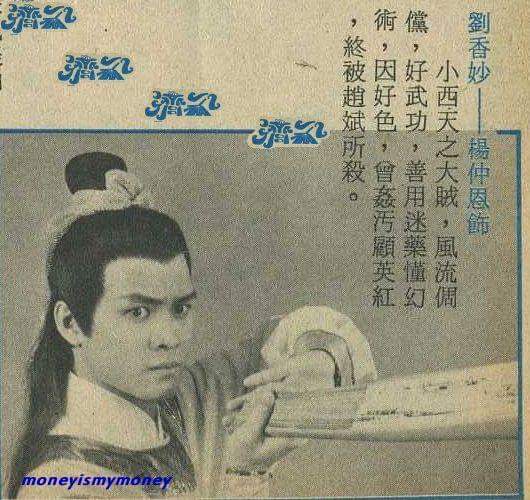 劉香妙——楊仲恩飾
小西天之大賊，風流倜
儻，好武功，善用迷藥懂幻
術，因好色，曾姦汚顧英紅
，終被趙斌所殺。
moneyismymoney